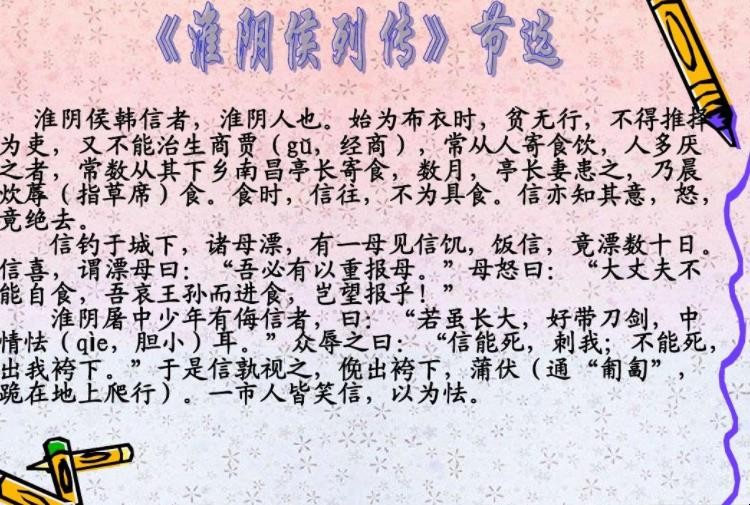 《淮阴侯列传》节选
淮阴侯韩信者，淮阴人也。始为布衣时，贫无行，不得推择
为吏，又不能治生商贾（gŭ，经商），常从人寄食饮，人多厌
之者，常数从其下乡南昌亭长寄食，数月，亭长妻患之，乃晨
炊蓐（指草席）食。食时，信往，不为具食。信亦知其意，怒，
竟绝去。
信钓于城下，诸母漂，有一母见信饥，饭信，竟漂数十日。
信喜，谓漂母曰：“吾必有以重报母。”母怒曰：“大丈夫不
能自食，吾哀王孙而进食，岂望报乎！”
淮阴屠中少年有侮信者，曰：“若虽长大，好带刀剑，中
情怯（qìe，胆小）耳。”众辱之曰：“信能死，刺我；不能死，
出我袴下。”于是信孰视之，俛出袴下，蒲伏（通“匍匐”，
跪在地上爬行）。一市人皆笑信，以为怯。